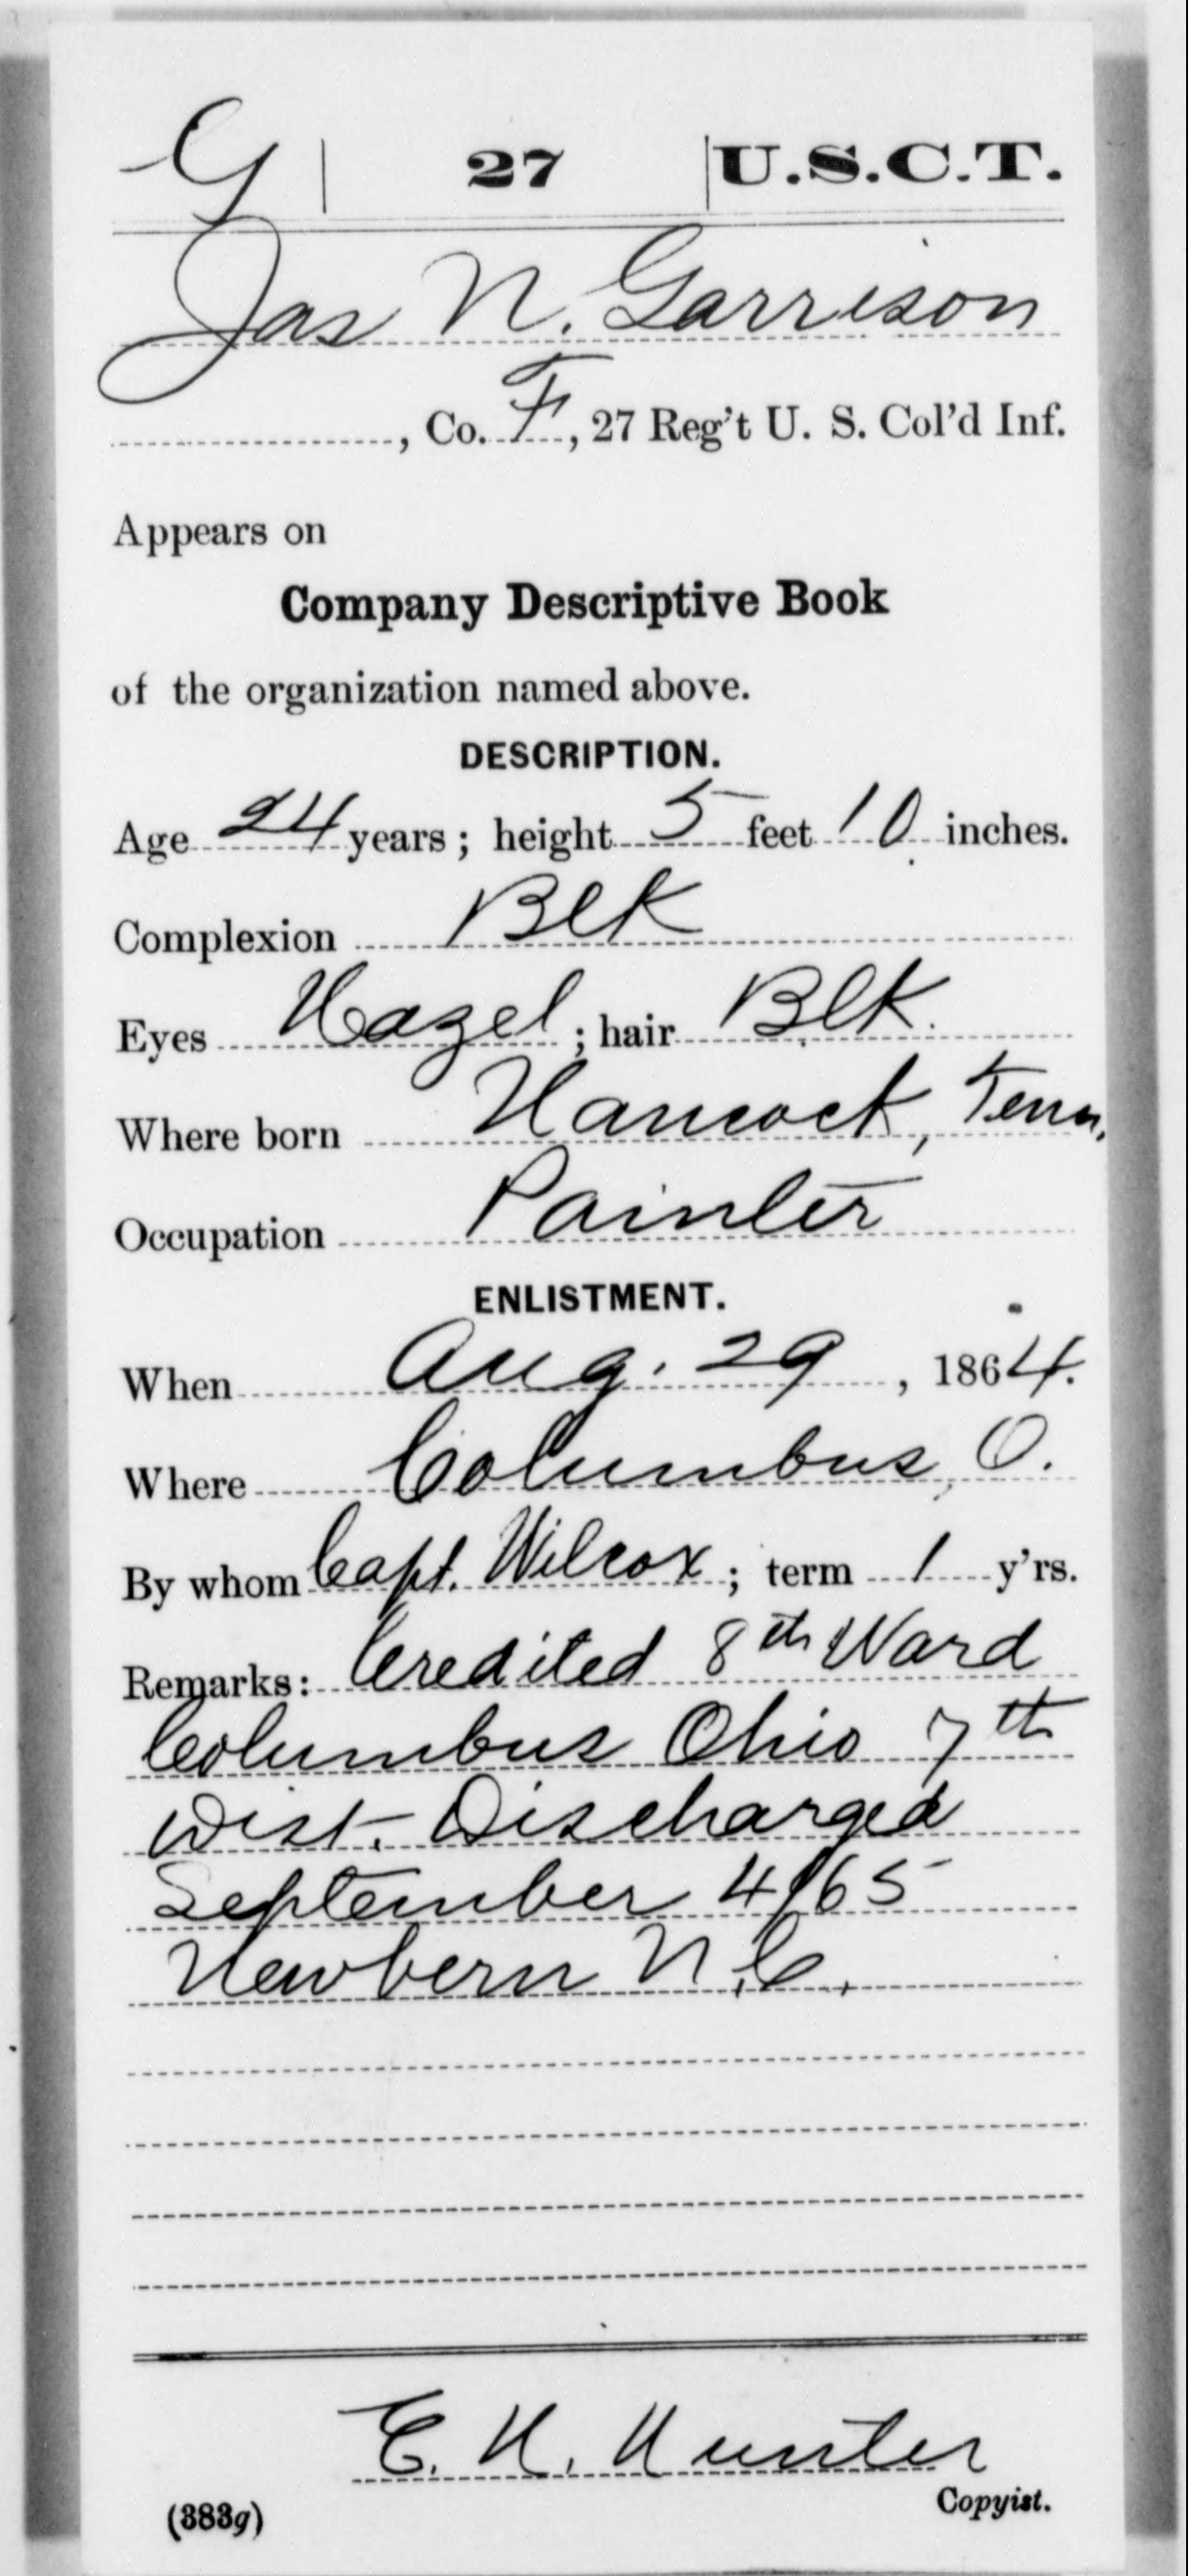 G | 27 | U.S.C.T.
Jas N. Garrison
, Co. F, 27 Reg't U. S. Col'd Inf.
Appears on
Company Descriptive Book
of the organization named above.
DESCRIPTION.
Age 24 years; height 5 feet 10 inches.
Complexion Blk
Eyes Hazel; hair Blk.
Where born Hancock, Tenn.
Occupation Painter
ENLISTMENT.
When Aug. 29, 1864.
Where Columbus, O.
By whom Capt. Wilcox; term 1 y'rs.
Remarks: Credited 8th Ward
Columbus Ohio 7th
Dist. Discharged
September 4/65
Newbern N.C.
E. H. Hunter
Copyist.
(383g)